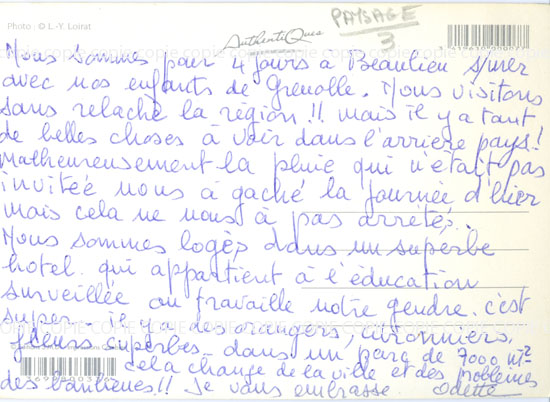 Photo : © L.-Y. Loirat
AuthentiQues
PAYSAGE
3
Nous sommes pour 4 jours à Beaulieu s/mer
avec nos enfants de Grenoble. Nous visitons
sans relache la région!! mais il y a tant
de belles choses à voir dans l'arrière pays!
malheureusement la pluie qui n'était pas
invitée nous a gaché la journée d'hier
mais cela ne nous a pas arretés.
Nous sommes logés dans un superbe
hotel qui appartient à l'éducation
surveillée ou travaille notre gendre. c'est
super - il y a des orangers, citronniers,
fleurs superbes - dans un parc de 7000 m2
cela change de la ville et des problèmes
des banlieues!! Je vous embrasse Odette